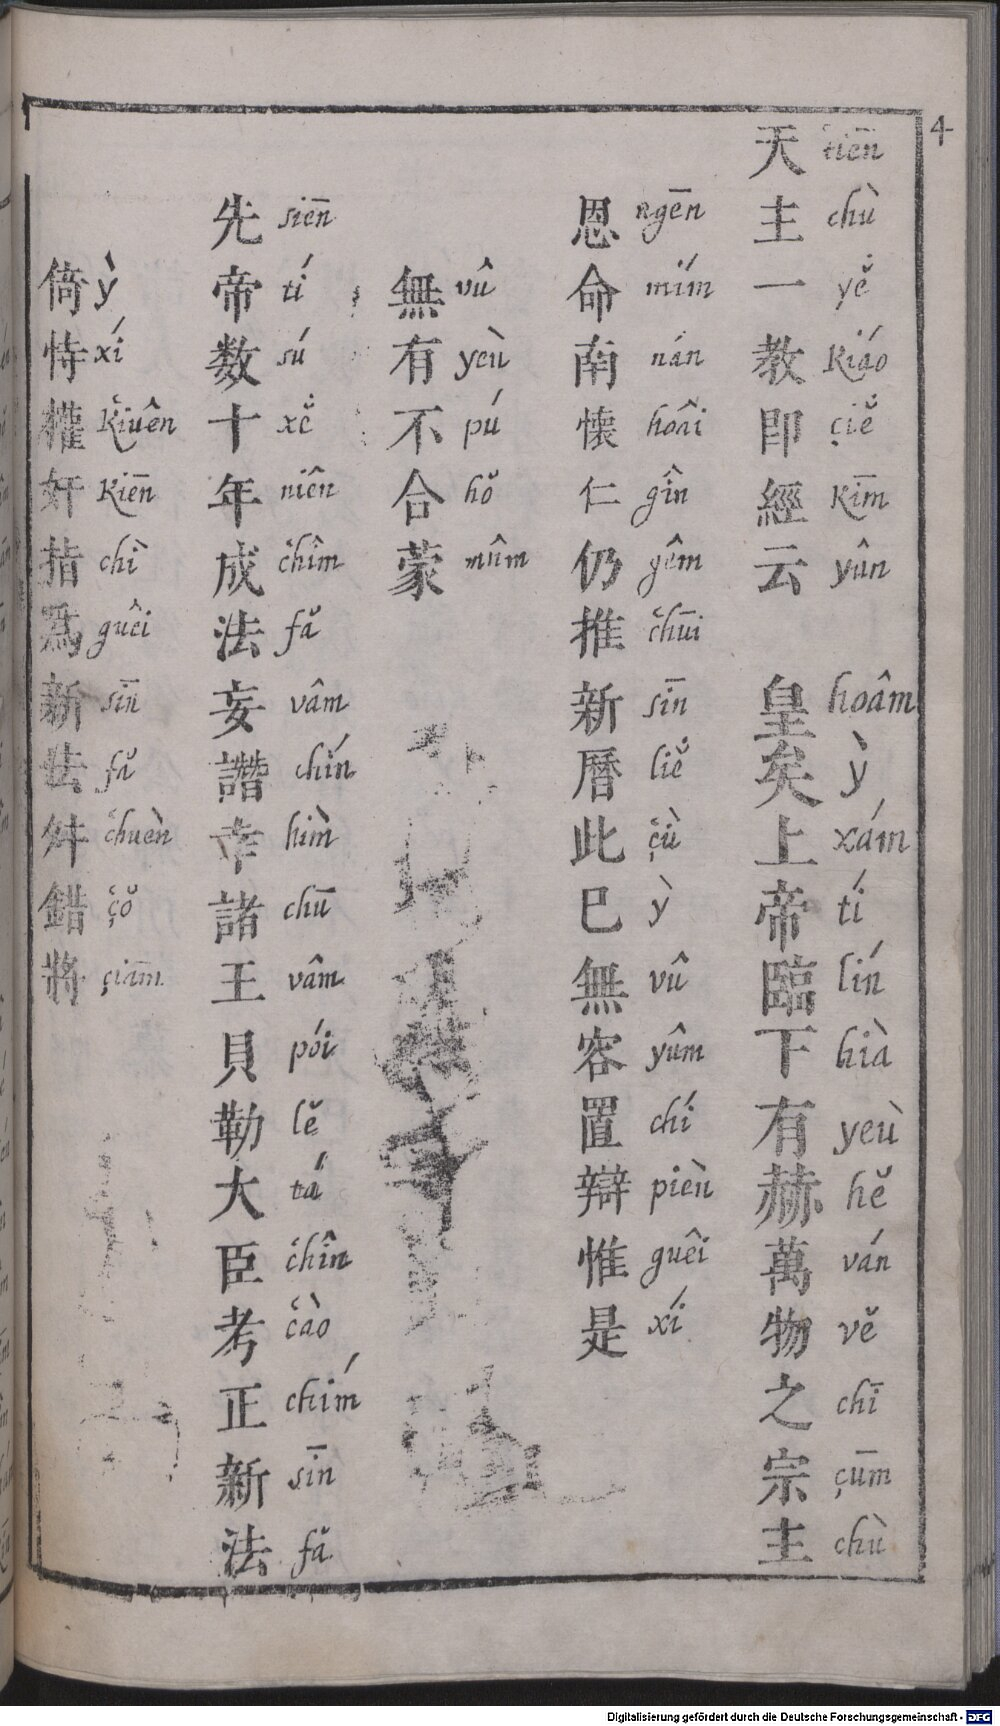 4
天主一教即經云 皇矣上帝臨下有赫萬物之宗主
tiēn chù yě kiáo çiě kīm yûn hoâm ỳ xám tí lín hià yeù hě ván vě chī çūm chù
恩命南懷仁仍推新曆此巳無容置辯惟是
ngēn mím nán hoâi gîn gêm chūi sīn liě çù ỳ vû yûm chí pièn guêi xí
無有不合蒙
vû yeù pú hǒ mûm
先帝数十年成法妄譖幸諸王貝勒大臣考正新法
siēn tí sú xě niên chîm fǎ vâm chín hìm chū vâm pói lě tá chîn cào chím sīn fǎ
倚恃權奸指爲新法舛錯將
ỳ xí kiuên kiēn chì guêi sīn fǎ chuèn çǒ çiām
Digitalisierung gefördert durch die Deutsche Forschungsgemeinschaft - DFG